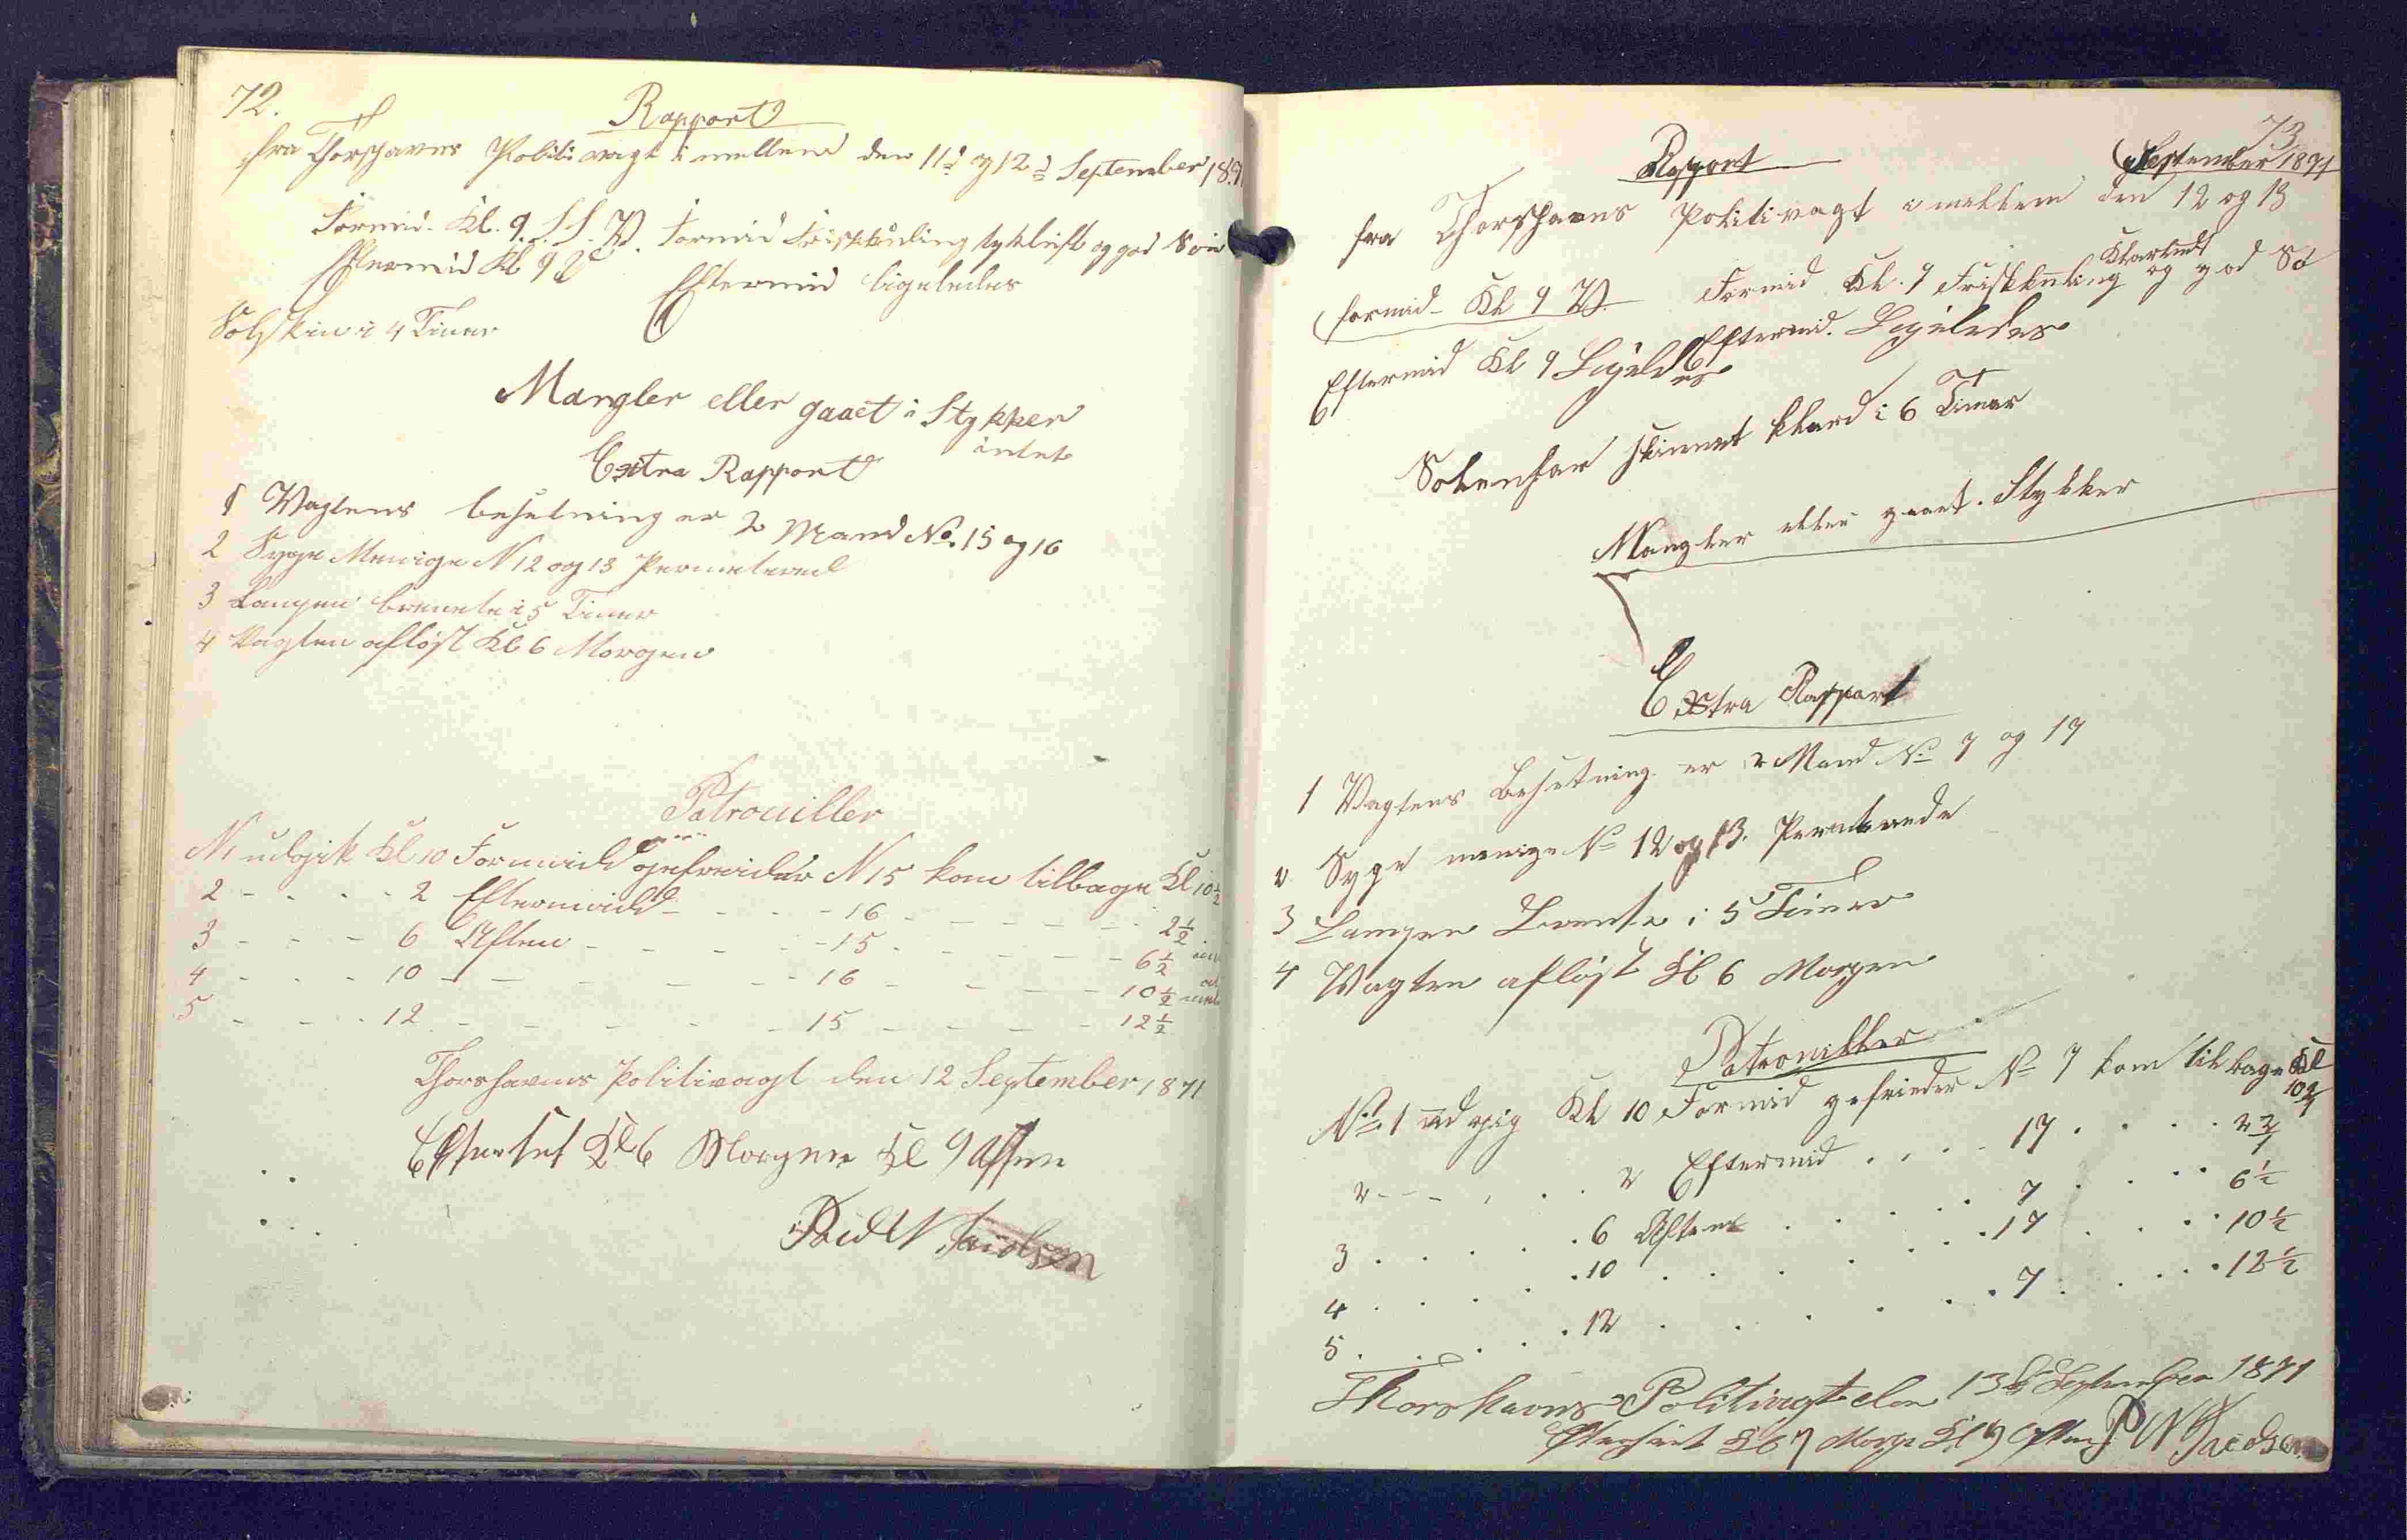 72.
Rapport
fra Thorshavns Politivagt i mellem den 11d og 12d September 1871
Formid. Kl. 9. S.S.V. Formid Friskkuling tykluft og god Søe
Eftermid Kl 9 Eftermid ligeledes
Solskin i 4 Timer
Mangler eller gaaet i Stykker
intet
Extra Rapport
1 Vagtens besetning er 2 Mand No. 15 og 16
2 Syge Menige N 12 og 13 Permitered
3 Lampen brente i 5 Timer
4 Vagten afløst Kl 6 Morgen
Patrouiller
N1 udgik Kl 10 Formidd gefreider N 15 kom tilbage Kl 10½
2 - - - 2 Eftermidd - - - 16 - - - - 2½
3 - - - 6 Aften - - - - 15 - - - - 6½
4 - - - 10 - - - - 16 - - - - 10½
5 - - - 12 - - - - 15 - - - - 12½
Thorshavns Politivagt den 12 September 1871
Efterset Kl 6 Morgen Kl 9 Aften
73
Rapport
September 1871
fra Thorshavns Politivagt i mellem den 12 og 13
Klarluft
Formid - Kl 9 V. Formid Kl. 9 Friskkuling og god Sø
Eftermid Kl 9 Ligeledes Eftermid. Ligeledes
Solen har skinnet klard i 6 Timer
Mangler eller gaaet i Stykker
Extra Rapport
1 Vagtens Besetning er 2 Mand No 7 og 17
2 Syge menige No 12 og 13. Permiterede
3 Lampen Brente i 5 Timer
4 Vagten afløst Kl 6 Morgen
Patrouiller
No 1 udgig Kl 10 Formid gefreider No 7 kom tilbage Kl
10½
2 - - - . . . 2 Eftermid . . . . 17 . . . . 2½
3 . . . . . 6 Aften . . . . . 7 . . . . 6½
4 . . . . . 10 . . . . . . 17 . . . . 10½
5 . . . . . 12 . . . . . . 7 . . . . 12½
Thorshavns Politivagt den 13d September 1871
Efterseet Kl 7 Morg Kl 9 Aften P W Jacobsen